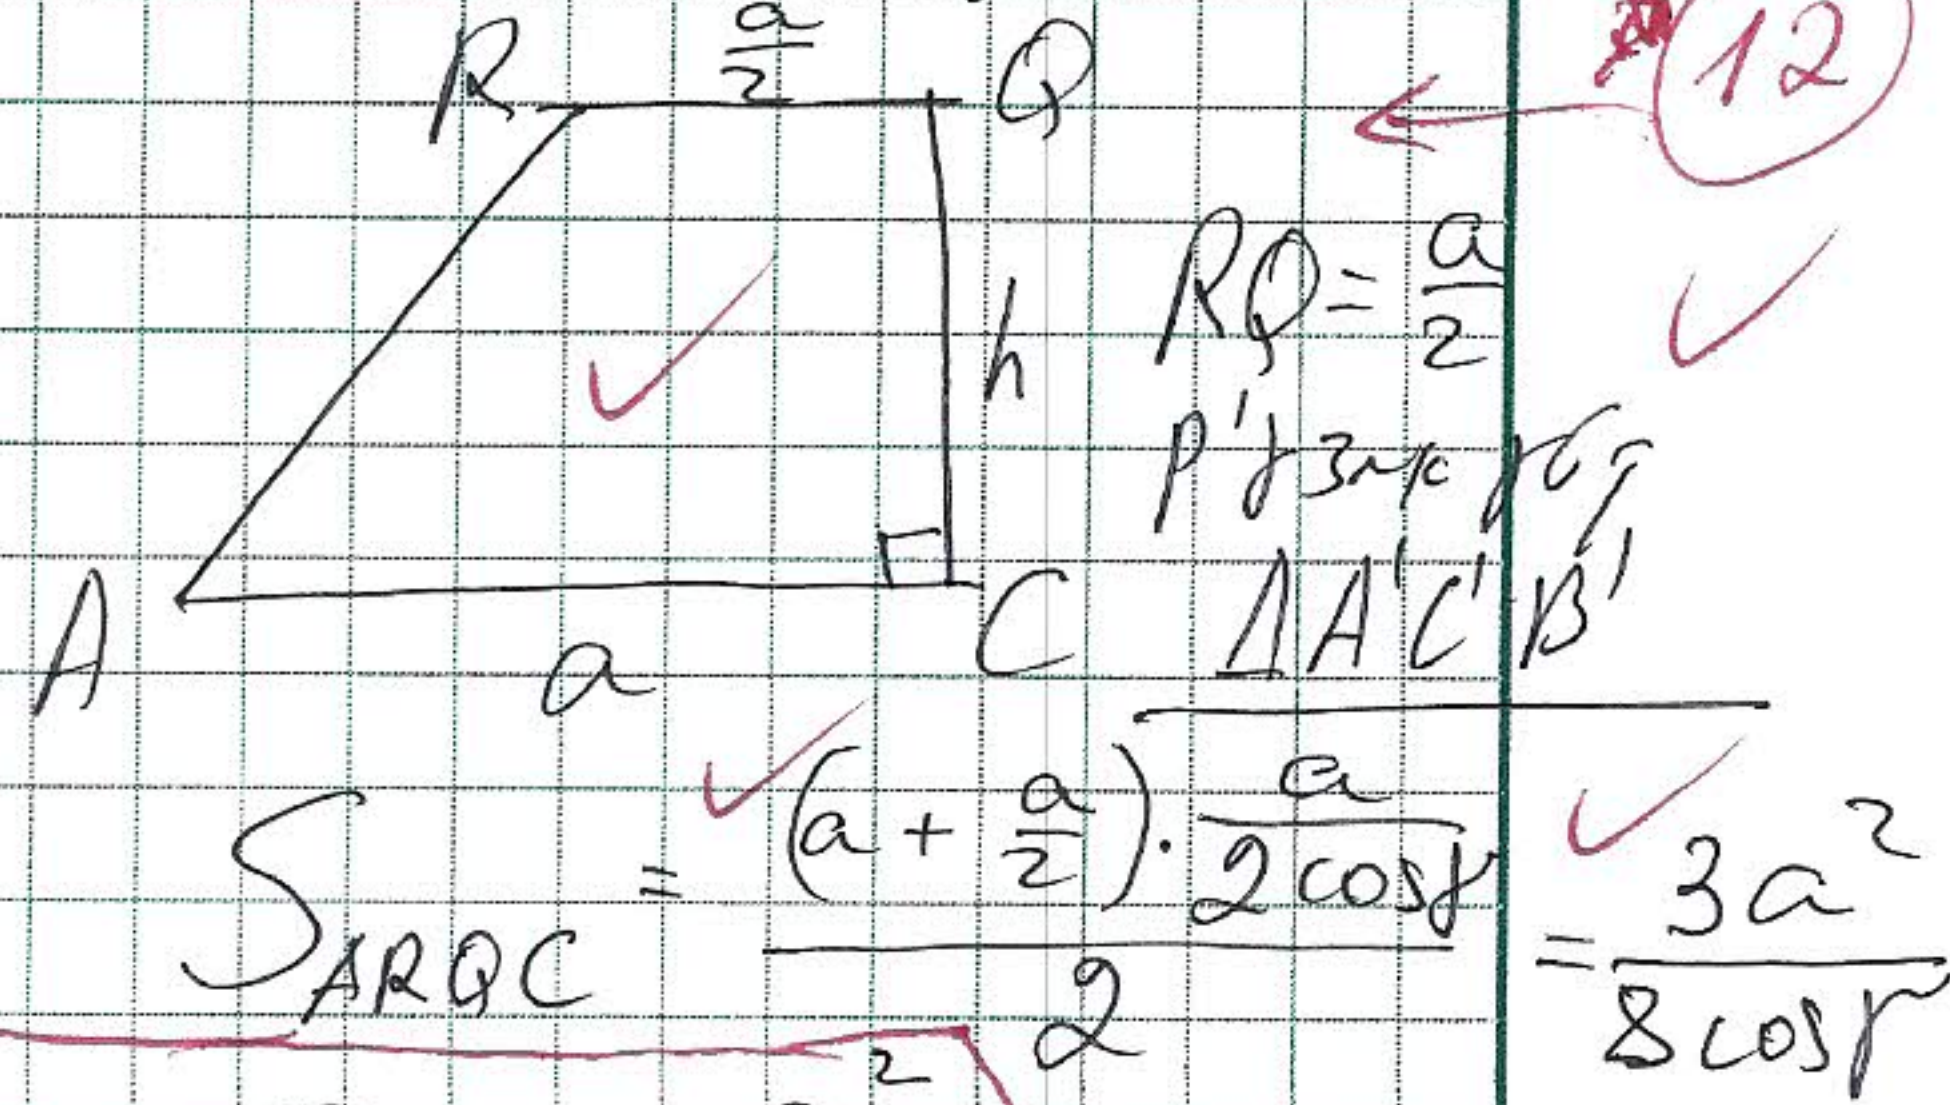 R a/2 Q
12
h
RQ = a/2
קטע אמצעים
ΔA'C'B'
A a C
S_ARQC = ((a + a/2) · a/(2cosγ))/2 = 3a²/(8cosγ)
2